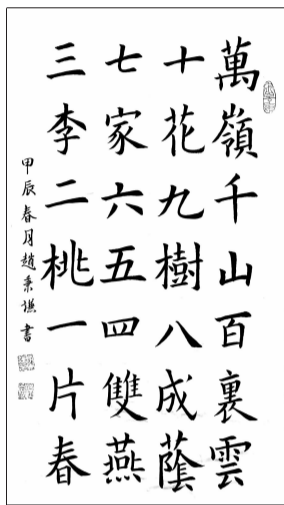 萬嶺千山百裏雲
十花九樹八成蔭
七家六五四雙燕
三李二桃一片春
甲辰春月趙秉謙書